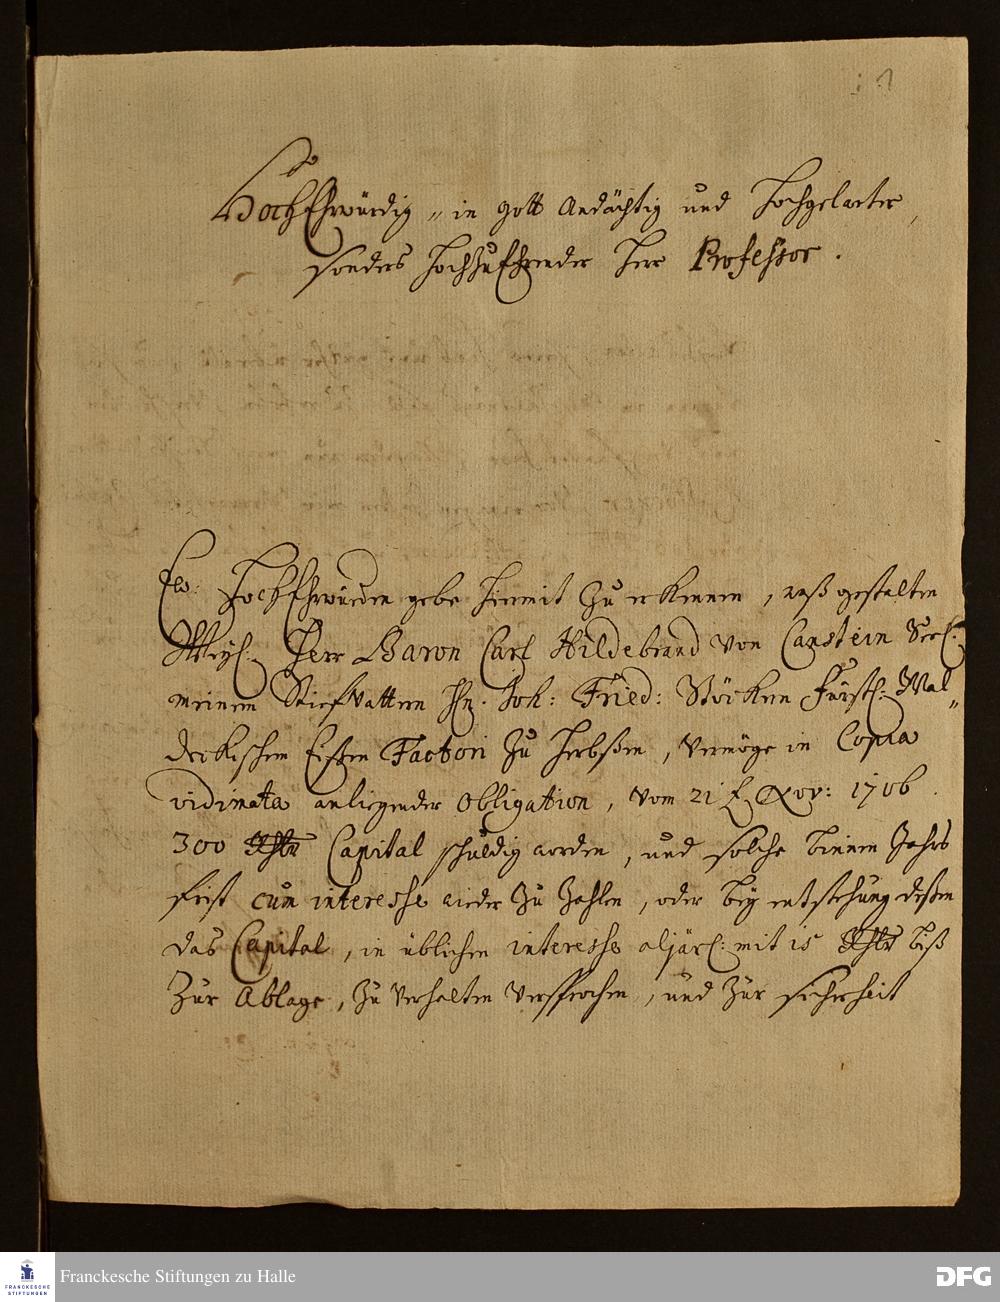 1
HochEhrwürdig, in Gott Andächtig und Hochgelarter,
sonders HochzuEhrender Herr Professor.
Ew: HochEhrwürden gebe hiermit zu erkennen, waß gestalten
Weyl: Herr Baron Carl Hildebrand von Canstein Seel:
meinem StiefVattern Hn. Joh: Fried: Stöcken Fürstl: Wal„
deckischen Eißen Factori zu Herbßen, vermöge in Copia
vidimata anliegender Obligation, vom 21 t Nov: 1706.
300 Rthlr Capital schuldig worden, und solche binnen Jahrs
frist cum interesse wieder zu zahlen, oder bey entstehung deßen
das Capital, in üblichen interesse aljärl: mit 15 Rthlr biß
zur Ablage, zu verhalten versprochen, und zur sicherheit
FRANCKESCHE STIFTUNGEN
Franckesche Stiftungen zu Halle
DFG